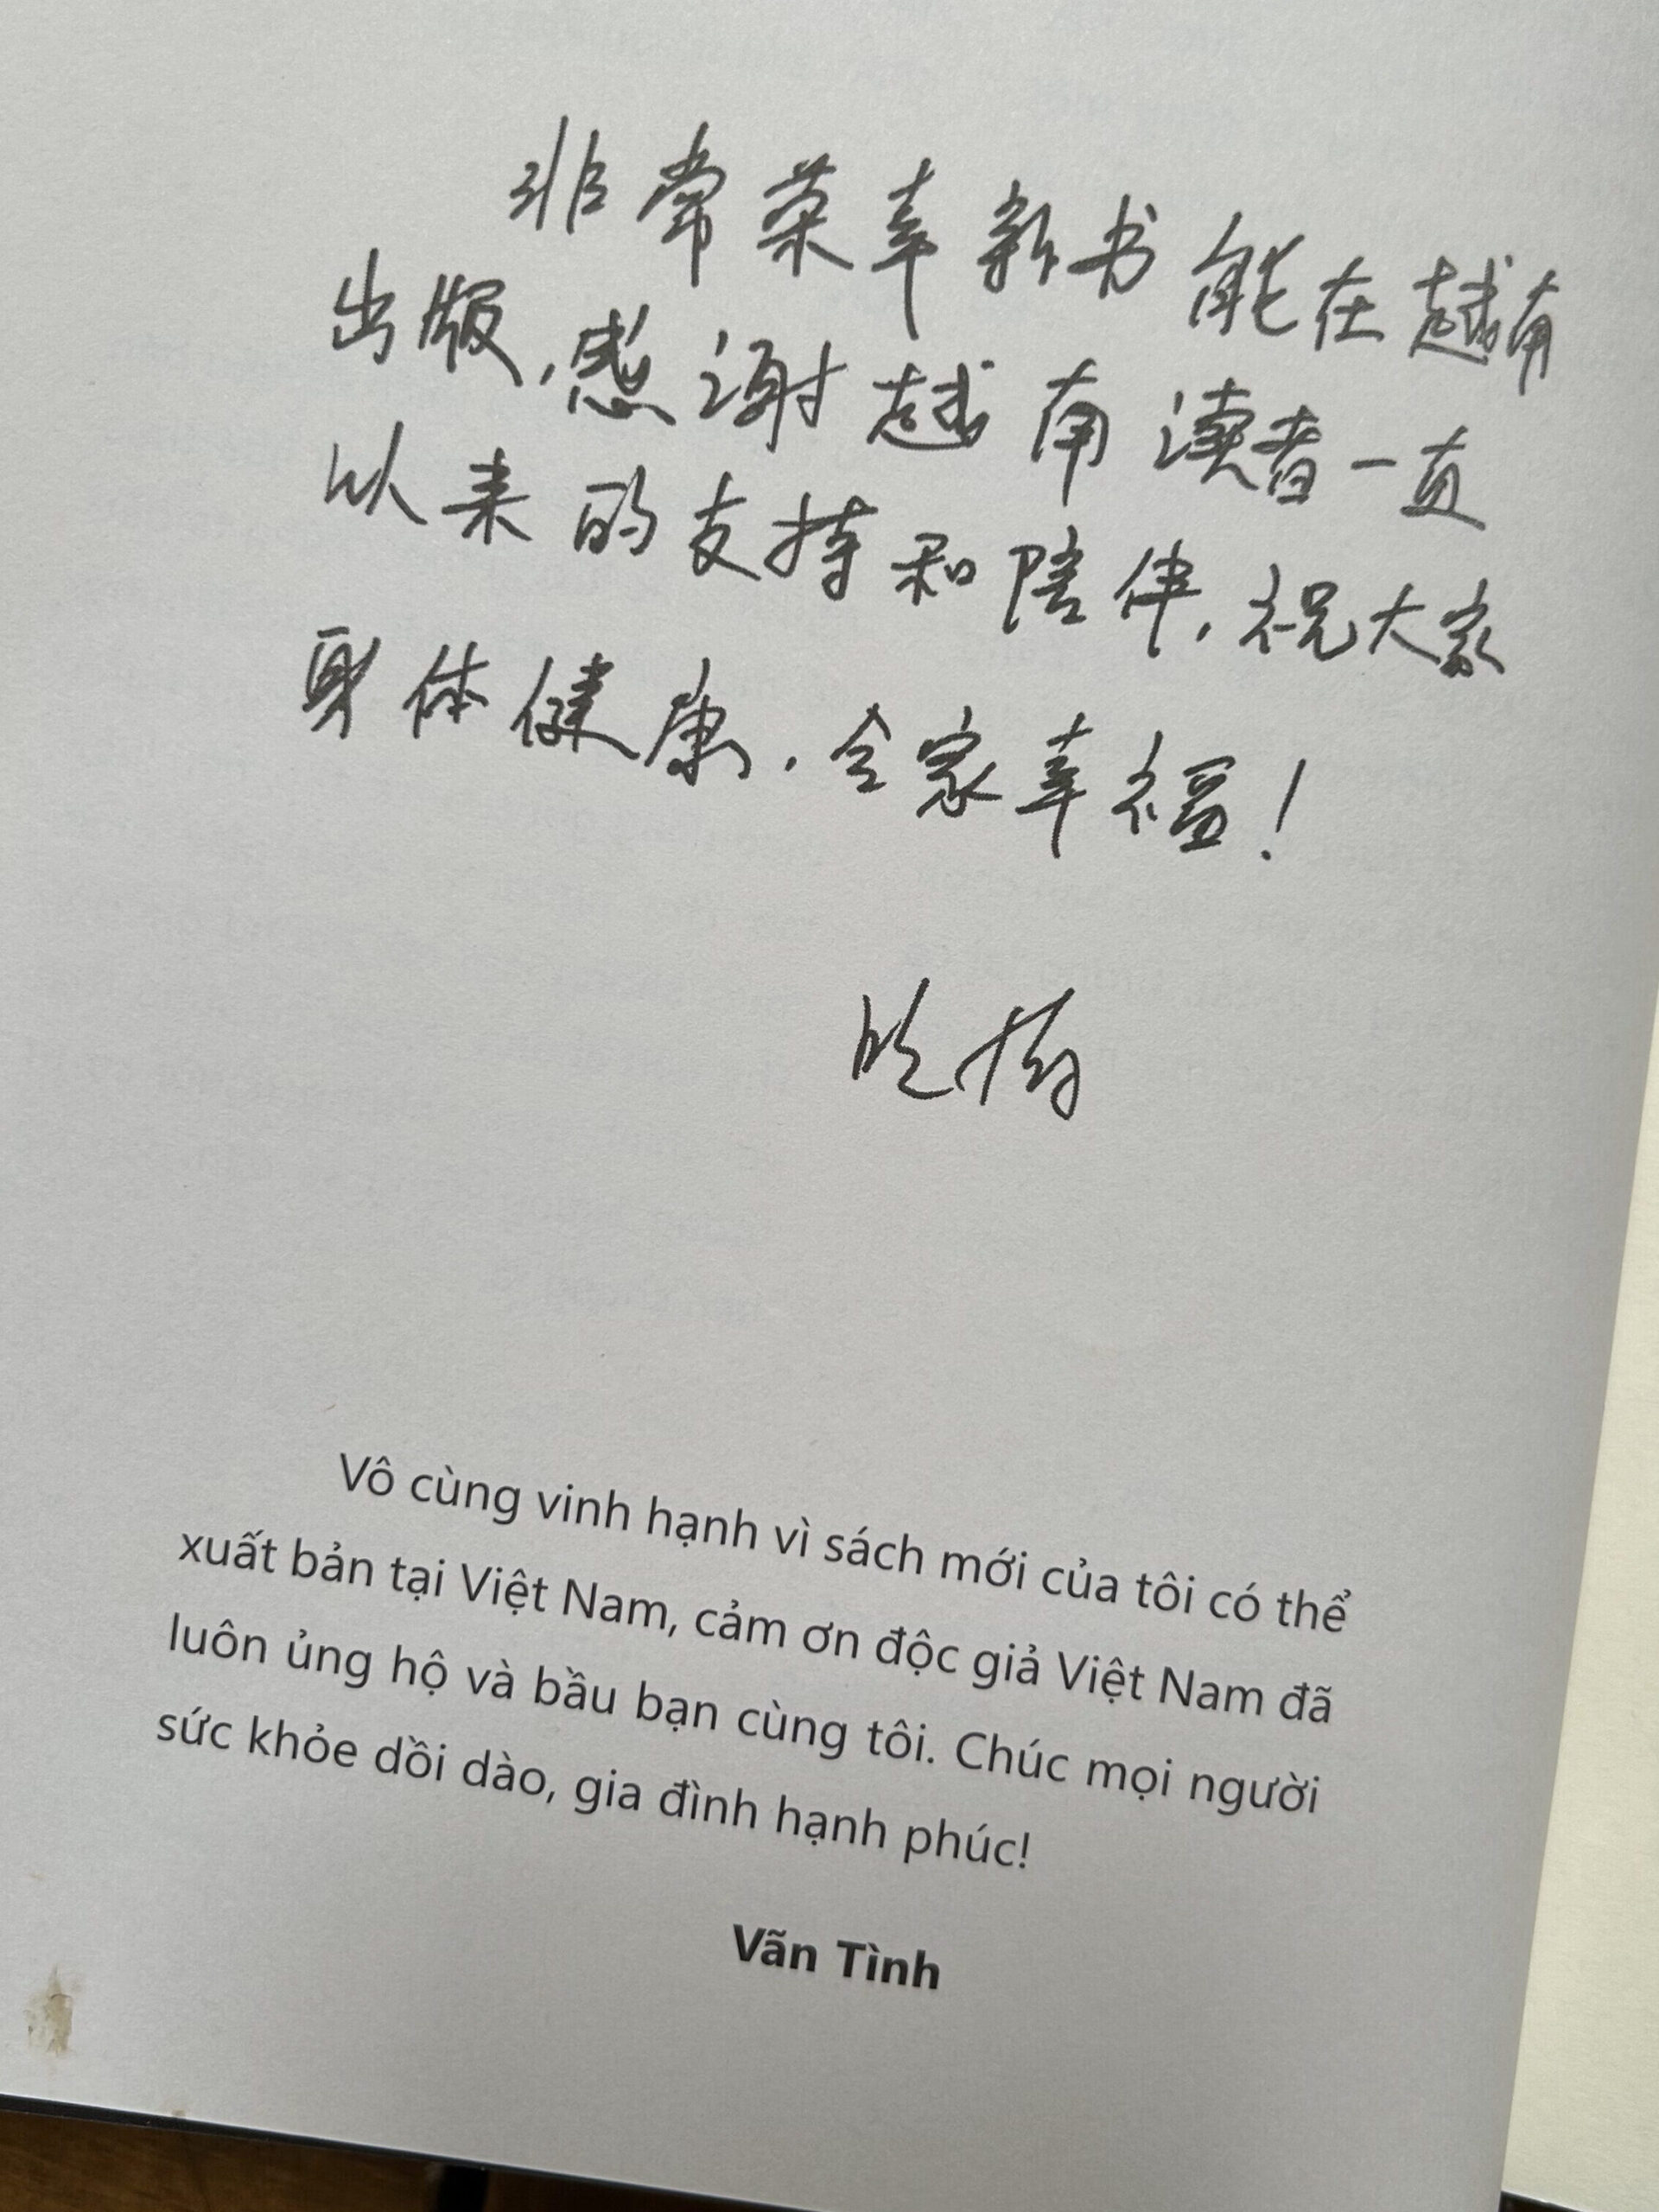 非常荣幸新书能在越南
出版,感谢越南读者一直
以来的支持和陪伴,祝大家
身体健康,全家幸福!
晚情
Vô cùng vinh hạnh vì sách mới của tôi có thể
xuất bản tại Việt Nam, cảm ơn độc giả Việt Nam đã
luôn ủng hộ và bầu bạn cùng tôi. Chúc mọi người
sức khỏe dồi dào, gia đình hạnh phúc!
Vãn Tình